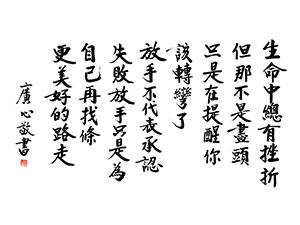 生命中總有挫折
但那不是盡頭
只是在提醒你
該轉彎了
放手不代表承認
失敗放手只是為
自己再找條
更美好的路走
廣心敬書